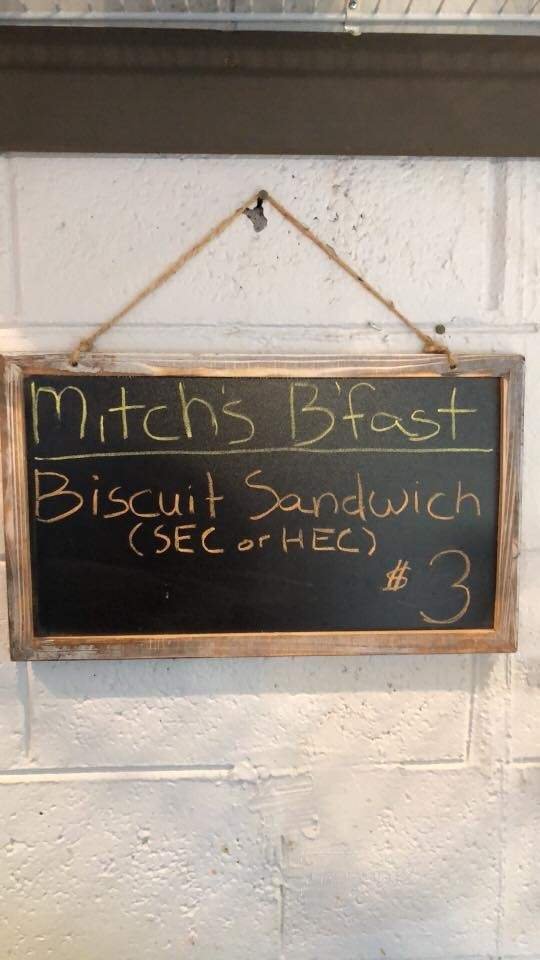 Mitch's B'fast
Biscuit Sandwich
(SEC or HEC)
$3